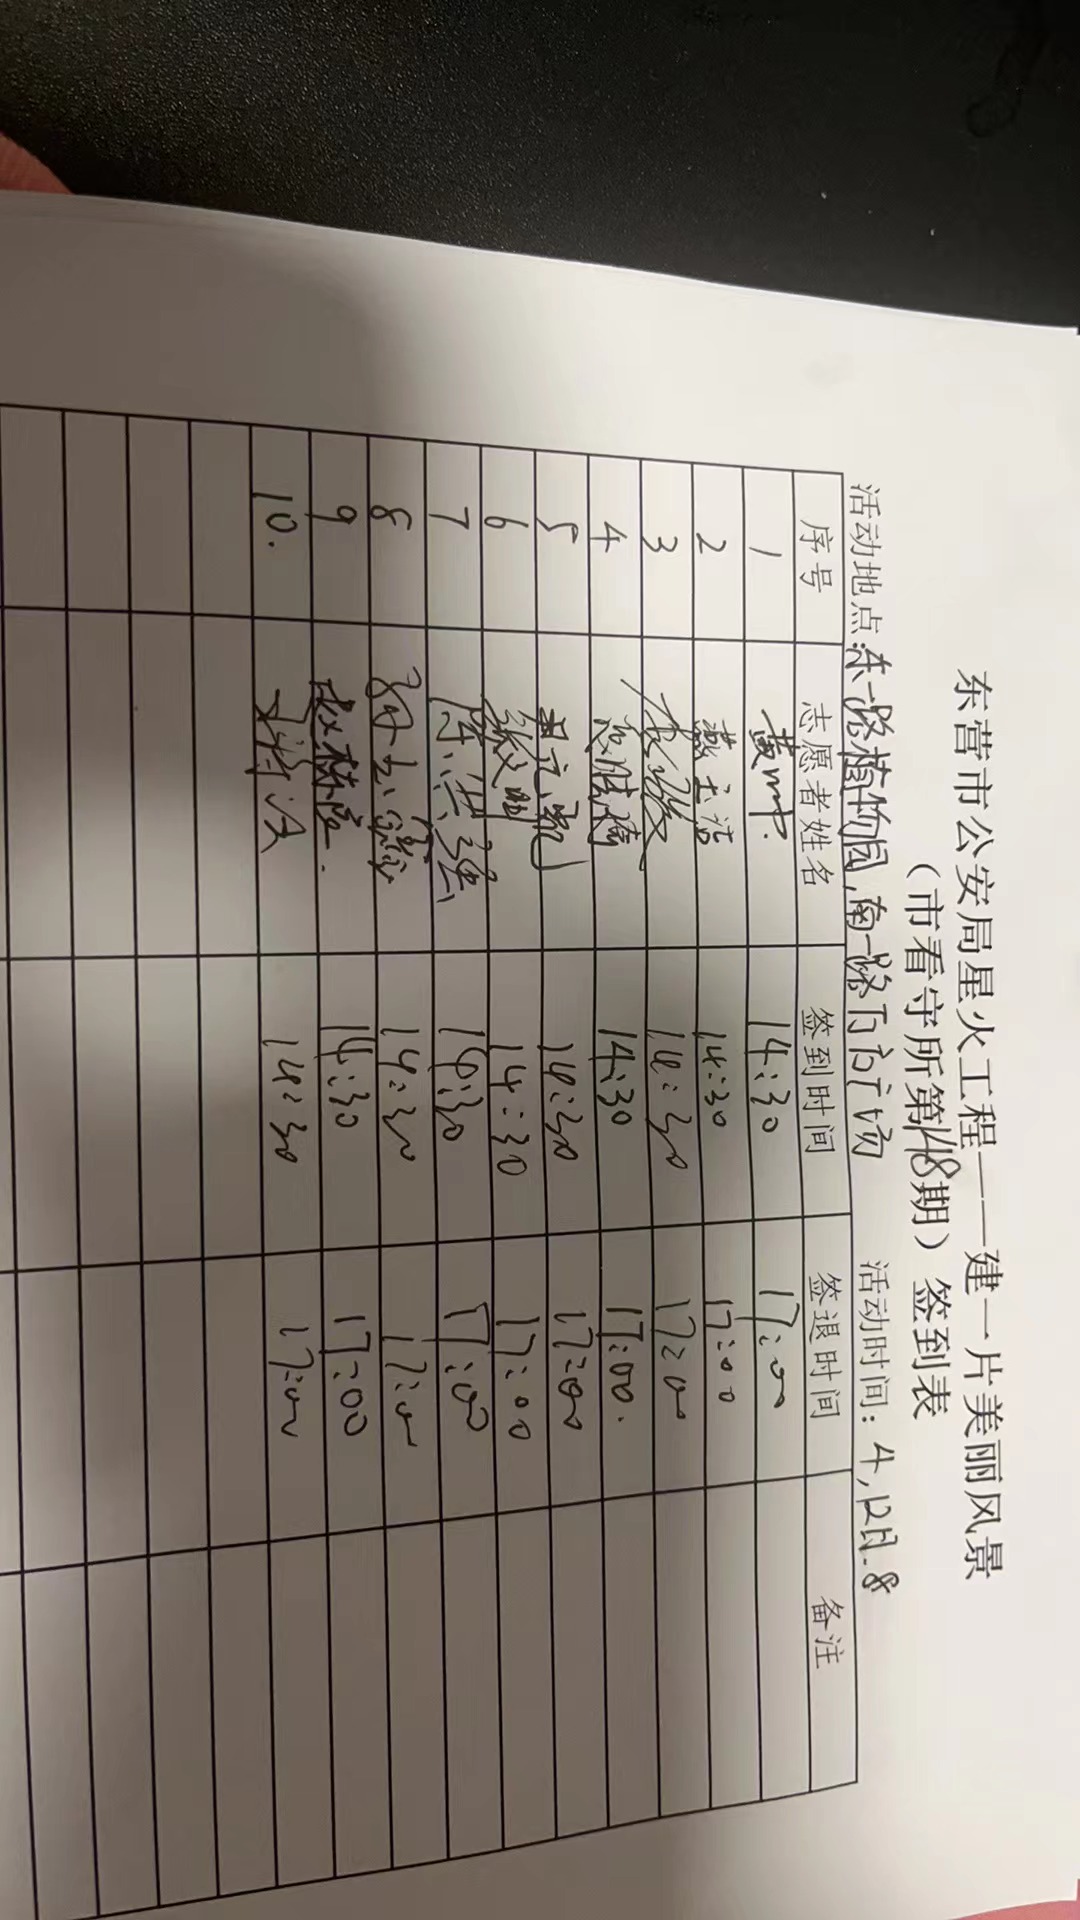 东营市公安局星火工程——建一片美丽风景
（市看守所第148期）签到表
活动地点：东一路植物园，南一路万方广场 活动时间：4，12月.8
序号 志愿者姓名 签到时间 签退时间 备注
1 黄 14:30 17:00
2 燕玉洁 14:30 17:00
3 14:30 17:00
4 14:30 17:00.
5 14:30 17:00
6 14:30 17:00
7 陈洪强 14:30 17:00
8 14:30 17:00
9 14:30 17:00
10. 14:30 17:00